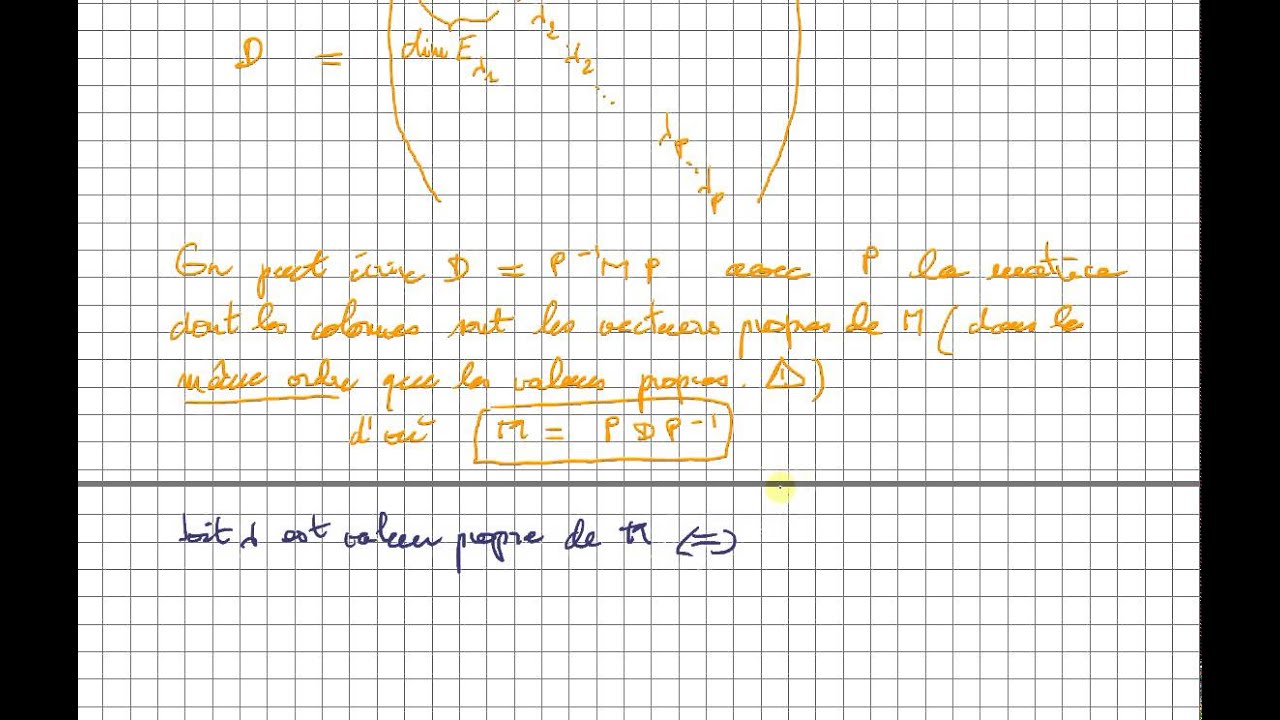 λ₂
D = dim E_λ₁ λ₂
...
λ_p
... λ_p
On peut écrire D = P⁻¹MP avec P la matrice
dont les colonnes sont les vecteurs propres de M (dans le
même ordre que les valeurs propres. ⚠)
d'où M = PDP⁻¹
Soit λ est valeur propre de M (=)